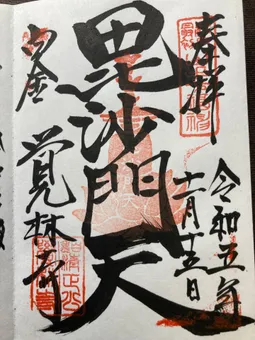 奉拝
令和五年
十一月十三日
毘沙門天
白金
覚林寺